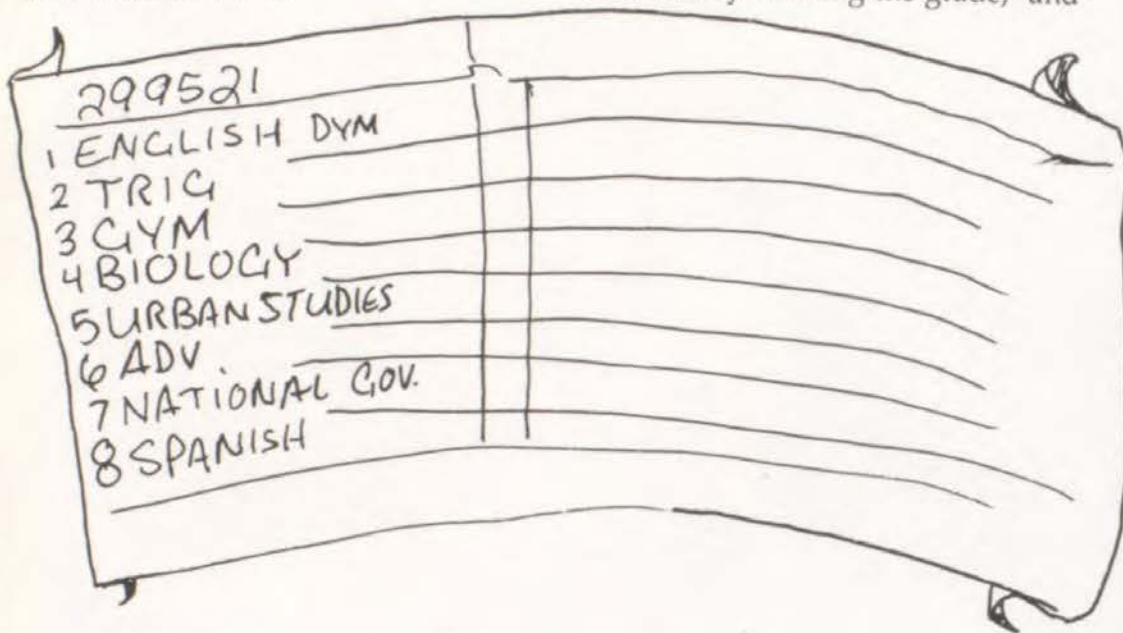 the grade, and
299521
1 ENGLISH DYM
2 TRIG
3 GYM
4 BIOLOGY
5 URBAN STUDIES
6 ADV.
7 NATIONAL GOV.
8 SPANISH